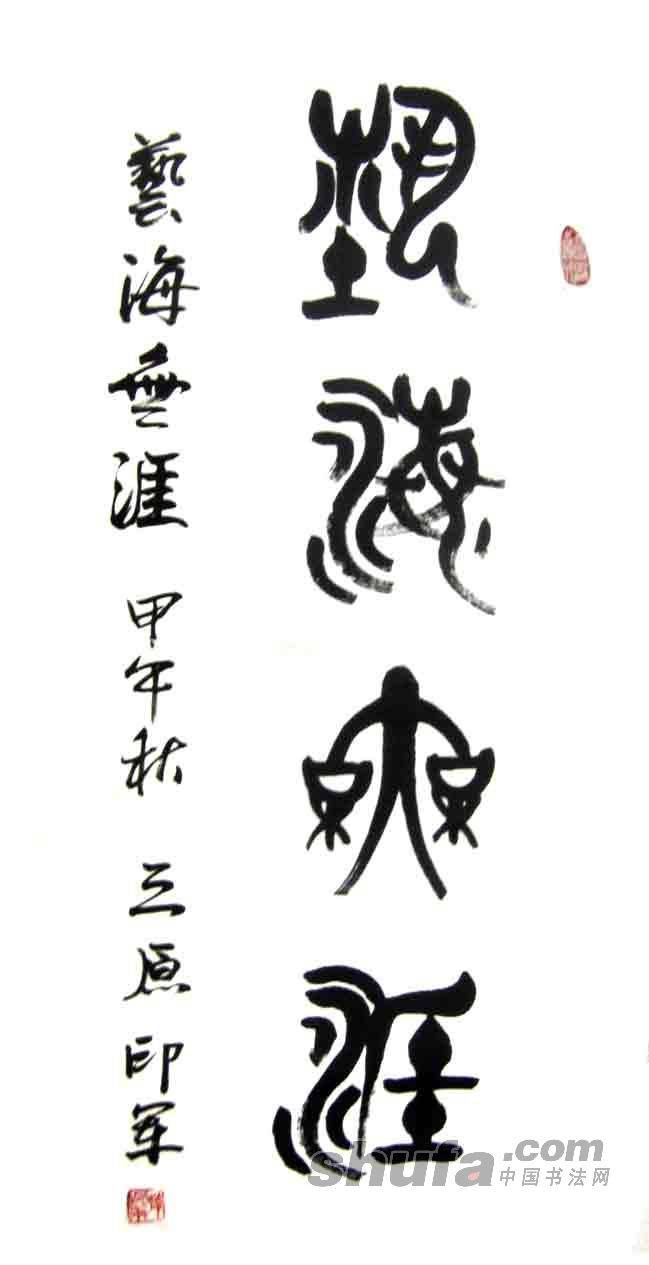 藝海無涯
藝海無涯 甲午秋 三原 印军
shufa.com
中国书法网